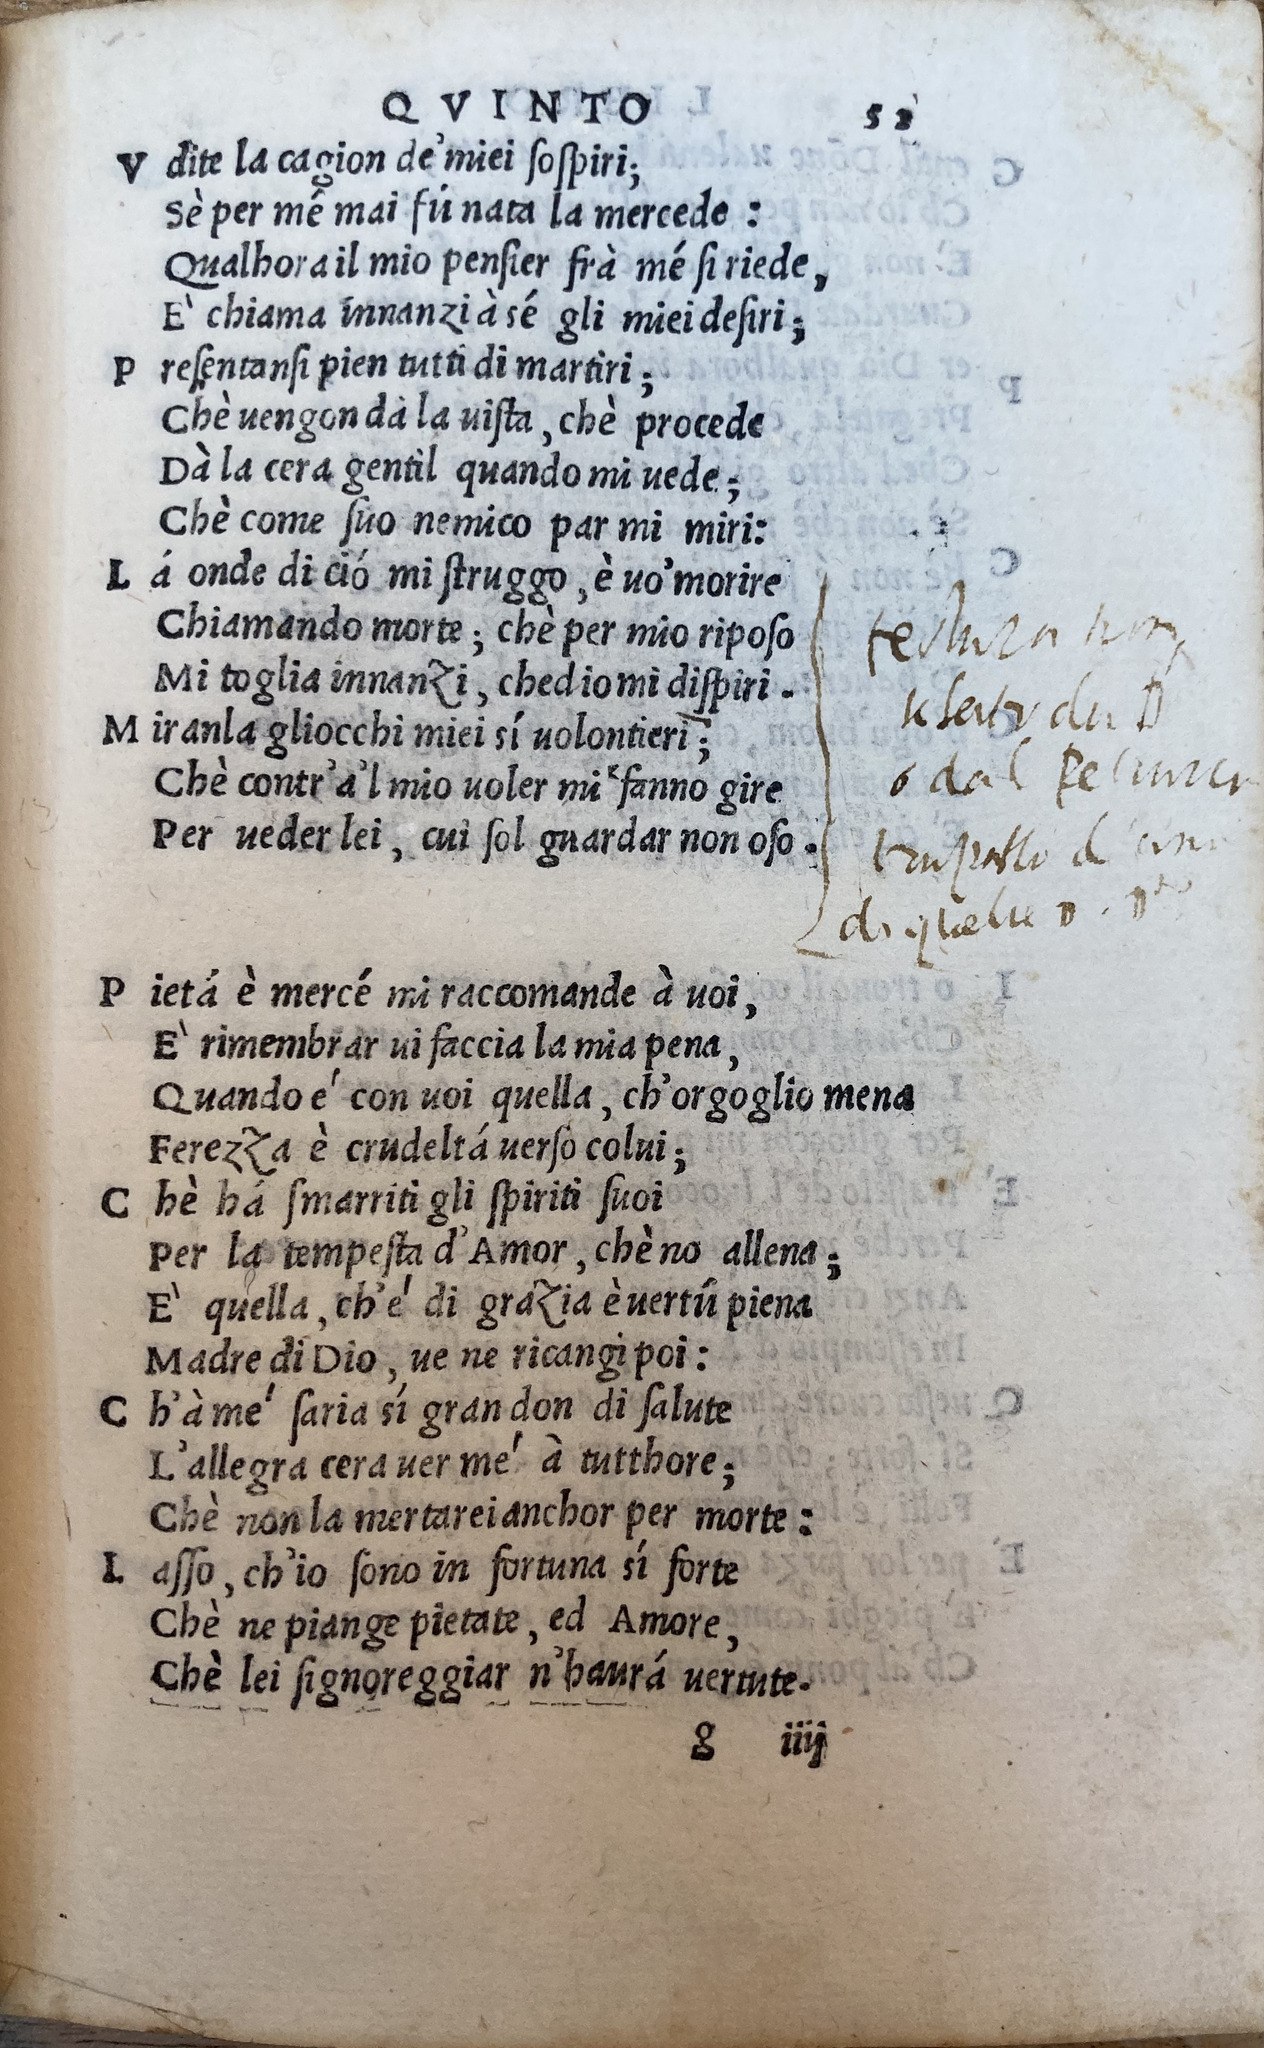 QVINTO 52
Vdite la cagion de'miei soſpiri;
Sè per mé mai fú nata la mercede :
Qualhora il mio penſier frà mé ſi riede,
E' chiama innanzi à sé gli miei deſiri;
Preſentanſi pien tutti di martiri;
Chè uengon dà la uiſta, chè procede
Dà la cera gentil quando mi uede;
Chè come ſuo nemico par mi miri:
Lá onde di ció mi ſtruggo, è uo'morire
Chiamando morte; chè per mio ripoſo
Mi toglia innanzi, ched io mi diſpiri.
Miranla gliocchi miei sí uolontieri;
Chè contr'a'l mio uoler mi fanno gire
Per ueder lei, cui ſol guardar non oſo.
o dal
Pietá è mercé mi raccomande à uoi,
E' rimembrar ui faccia la mia pena,
Quando e' con uoi quella, ch'orgoglio mena
Ferezza è crudeltá uerſo colui;
Chè há ſmarriti gli ſpiriti ſuoi
Per la tempeſta d'Amor, chè no allena;
E' quella, ch'e' di grazia è uertú piena
Madre di Dio, ue ne ricangi poi:
Ch'à me' ſaria sí gran don di ſalute
L'allegra cera uer me' à tutthore;
Chè non la mertarei anchor per morte:
Laſſo, ch'io ſono in fortuna sí forte
Chè ne piange pietate, ed Amore,
Chè lei ſignoreggiar n'haurá uertute.
g iiij